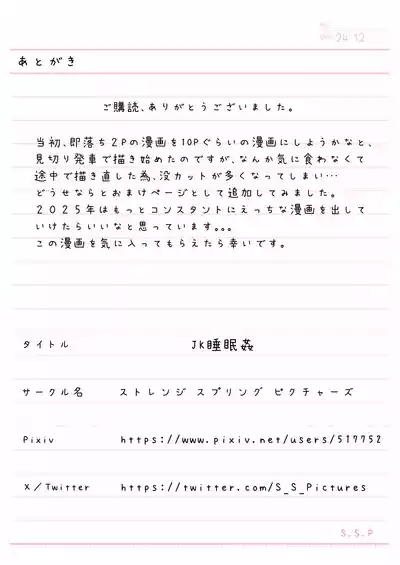 24 12
あとがき
ご購読、ありがとうございました。
当初、即落ち2Pの漫画を10Pぐらいの漫画にしようかなと、
見切り発車で描き始めたのですが、なんか気に食わなくて
途中で描き直した為、没カットが多くなってしまい…
どうせならとおまけページとして追加してみました。
2025年はもっとコンスタントにえっちな漫画を出して
いけたらいいなと思っています。。。
この漫画を気に入ってもらえたら幸いです。
タイトル JK睡眠姦
サークル名 ストレンジ スプリング ピクチャーズ
Pixiv https://www.pixiv.net/users/517752
X/Twitter https://twitter.com/S_S_Pictures
S.S.P